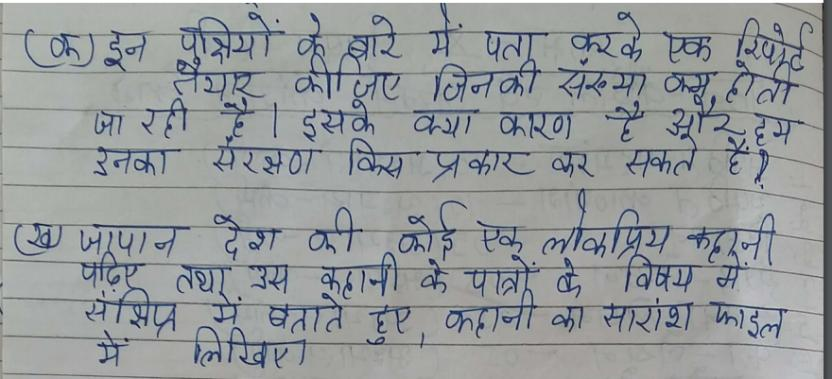 (क) इन पक्षियों के बारे में पता करके एक रिपोर्ट
तैयार कीजिए जिनकी संख्या कम होती
जा रही है। इसके क्या कारण है और हम
इनका संरक्षण किस प्रकार कर सकते हैं?
(ख) जापान देश की कोई एक लोकप्रिय कहानी
पढ़िए तथा उस कहानी के पात्रों के विषय में
संक्षिप्त में बताते हुए, कहानी का सारांश फाइल
में लिखिए।